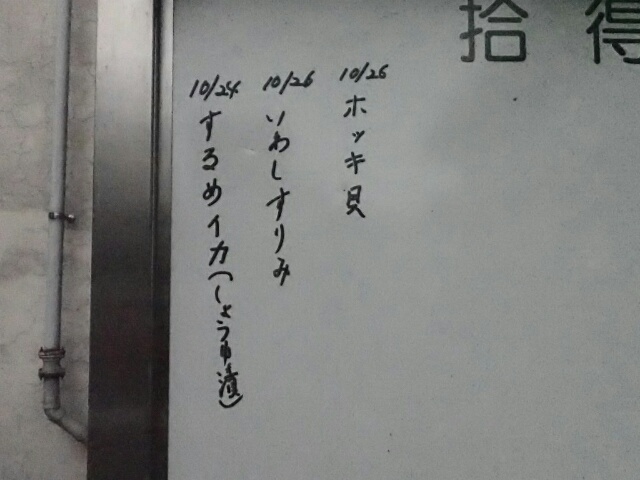 拾得
10/26 ホッキ貝
10/26 いわしすりみ
10/24 するめイカ(しょうゆ漬)